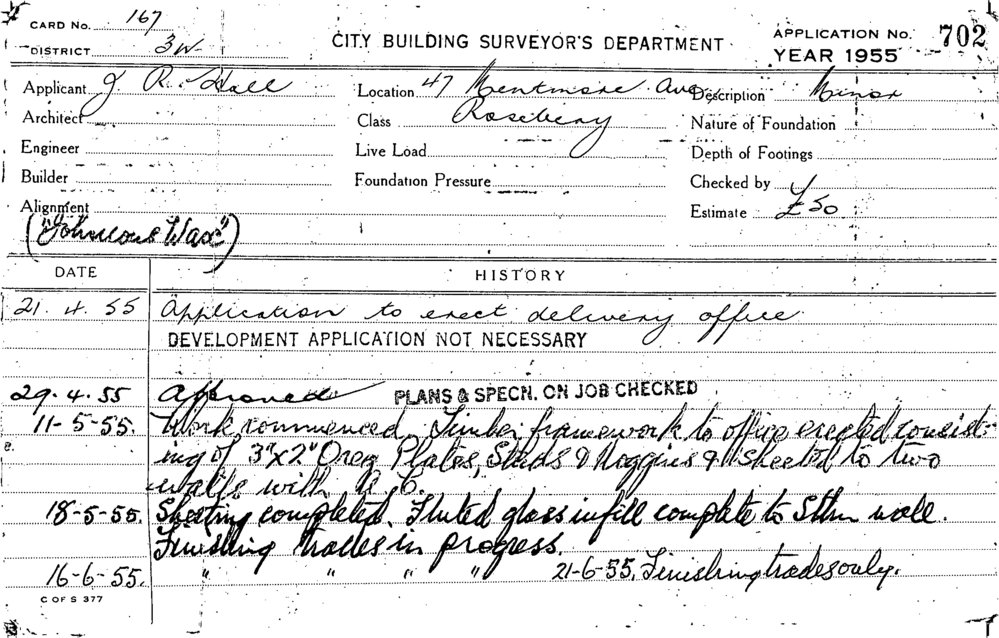 CARD No. 167
DISTRICT 3W
CITY BUILDING SURVEYOR'S DEPARTMENT
APPLICATION No. 702
YEAR 1955
Applicant J R. Hall
Location 47 Mentmore Ave
Description Minor
Architect
Class Rosebery
Nature of Foundation
Engineer
Live Load
Depth of Footings
Builder
Foundation Pressure
Checked by
Alignment
Estimate £50
("Johnsons Wax")
DATE HISTORY
21. 4. 55 Application to erect delivery office
DEVELOPMENT APPLICATION NOT NECESSARY
29. 4. 55 Approved PLANS & SPECN. ON JOB CHECKED
11-5-55. Work commenced. Timber framework to office erected consist-
ing of 3"x2" Oreg Plates, Studs & Noggins & sheeted to two
walls with A.C.
18-5-55. Sheeting completed. Fluted glass infill complete to Sthn wall.
Finishing trades in progress.
16-6-55. " " " " 21-6-55. Finishing trades only.
C OF S 377